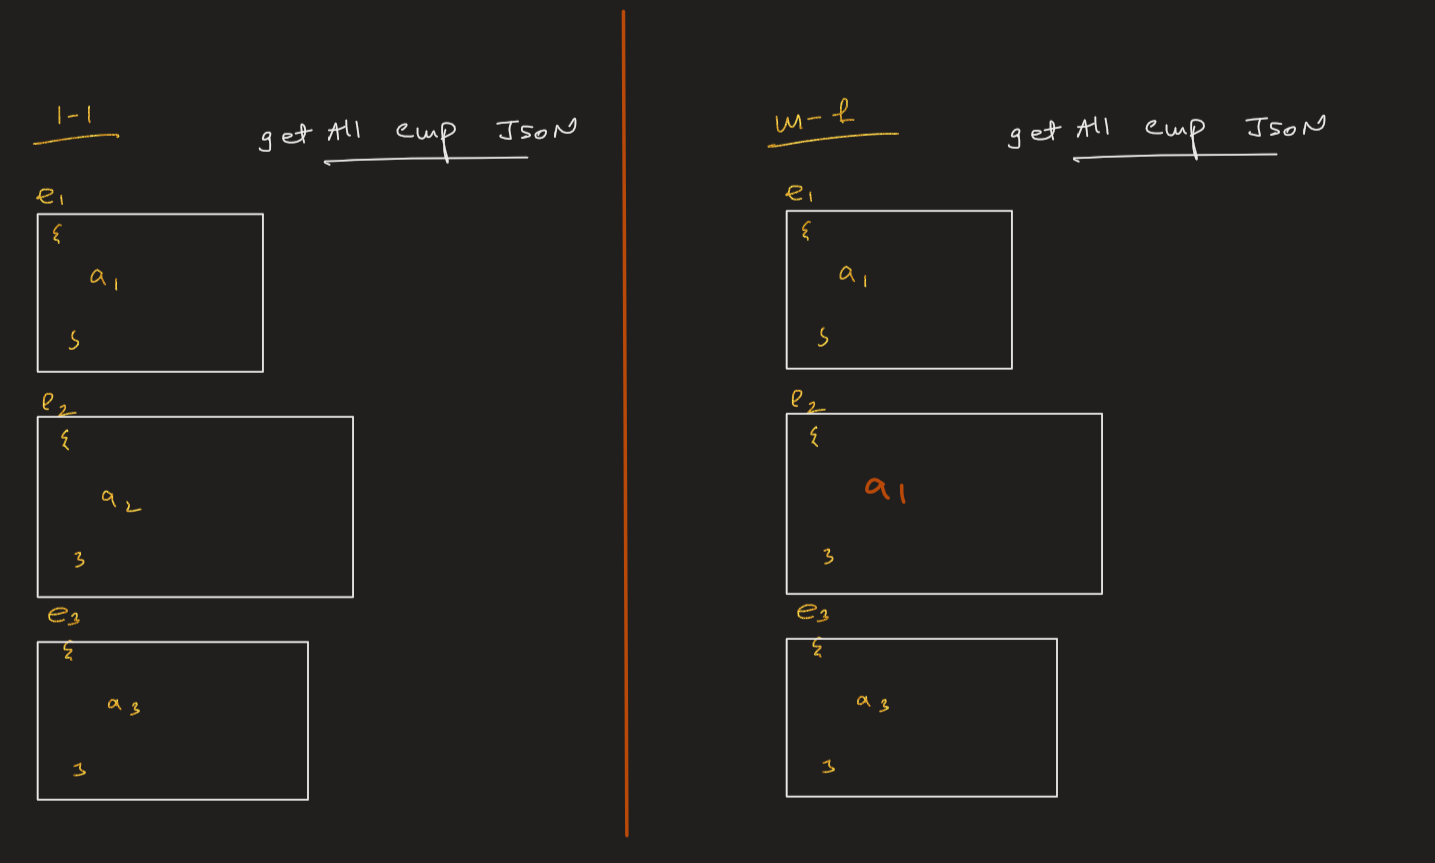 1-1
get All emp JSON
e1
{
a1
}
e2
{
a2
}
e3
{
a3
}
m-1
get All emp JSON
e1
{
a1
}
e2
{
a1
}
e3
{
a3
}